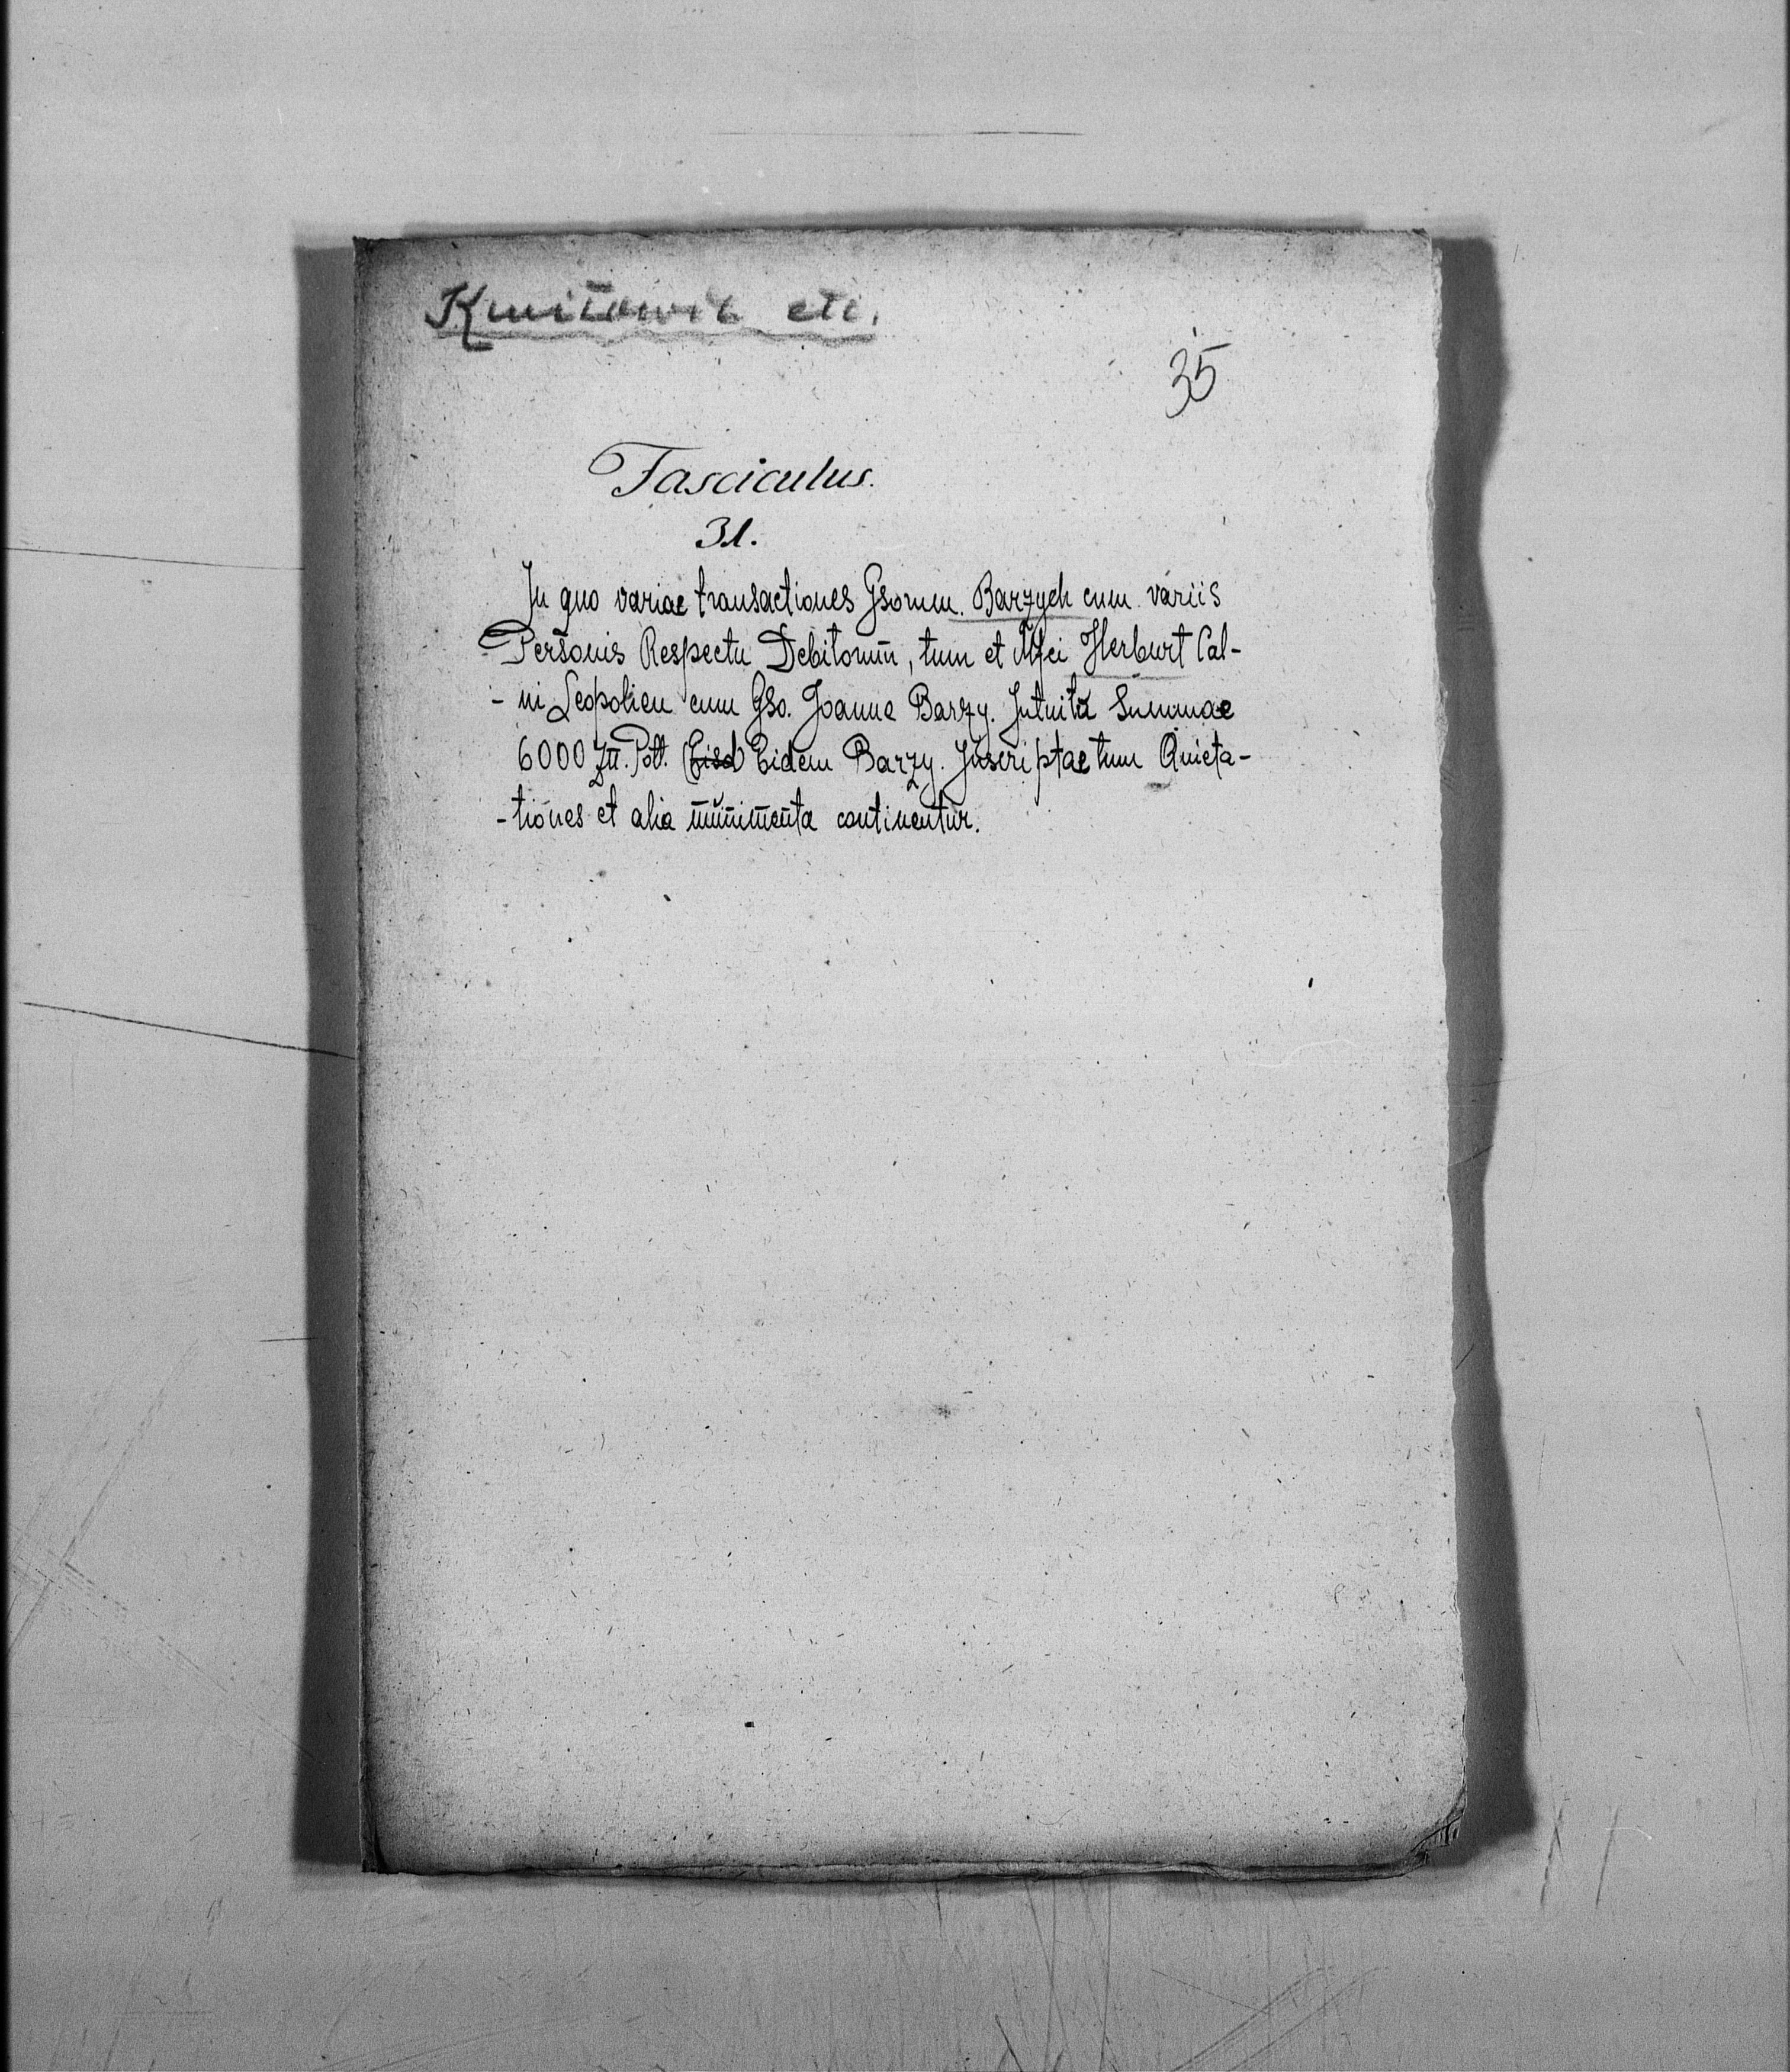 Kmitowie etc.
35
Fasciculus.
31.
In quo variae transactiones Gsorum. Barzych cum variis
Personis Respectu Debitorum, tum et Mfci Herburt Cal-
- ni Leopolien cum Gso. Joanne Barzy. Intuitu Summae
6000 Fll. Poll. Eidem Barzy. Inscriptae tum Quieta-
- tiones et alia munimenta continentur.